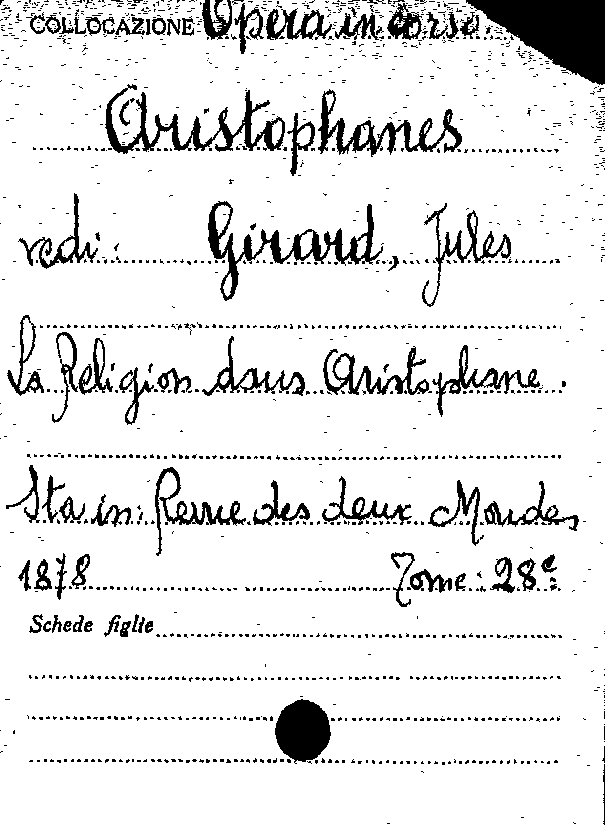 COLLOCAZIONE Opera in corso.
Aristophanes
vedi: Girard, Jules
La Religion dans Aristophane.
Sta in: Revue des deux Mondes,
1878 Tome: 28e
Schede figlie